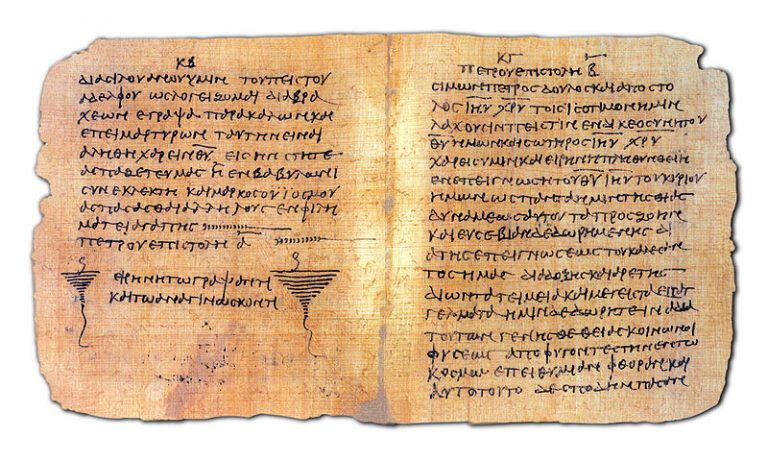 ΚΒ
διασιλουανουυμιν τουπειστου
αδελφου ωσλογειζωμαι διαβρα
χεων εγραψα παρακαλωνκαι
επειμαρτυρων ταυτηνειναι
αληθηχαρειν θ̅υ̅ εισ ην στητε
ασπαζετεϋμασ η ενβαβυλωνι
συνεκλεκτη καιμαρκοσουϊοσμου
ασπασασθαιαλληλουσ ενφιλη
ματειαγαπησ
πετρουεπιστολη α̅
ειρηνητωγραψαντι
καιτωαναγινωσκοντι
ΚΓ
πετρουεπιστολη β̅
σιμωνπετροσ δουλοσκαιαποστο
λοσ ι̅η̅υ̅ χ̅ρ̅υ̅ τοισισοτιμονημιν
λαχουσινπειστιν ενδικεοσυνητου
θ̅υ̅ ημωνκαισωτηροσ ι̅η̅υ̅ χ̅ρ̅υ̅
χαρεισυμινκαιειρηνηπληθυνθειη
ενεπειγνωσητου θ̅υ̅ ι̅η̅υ̅ τουκυριου
ημωνωσπανταημιντησθειασ
δυναμεωσαυτουταπροσζωην
καιευσεβιανδεδωρημενησδι
ατησεπειγνωσεωστουκαλεσαν
τοσημασ διαδοξησκαιαρετησ
διωντατειμειακαιμεγεισταεπαγ
γελματαημινδεδωρητειναδια
τουτωνγενησθεθειασκοινωνοι
φυσεωσ αποφυγοντεστηνεντω
κοσμωεπειθυμιαν φθορασ και
αυτοτουτο δεσπουδηνπασαν